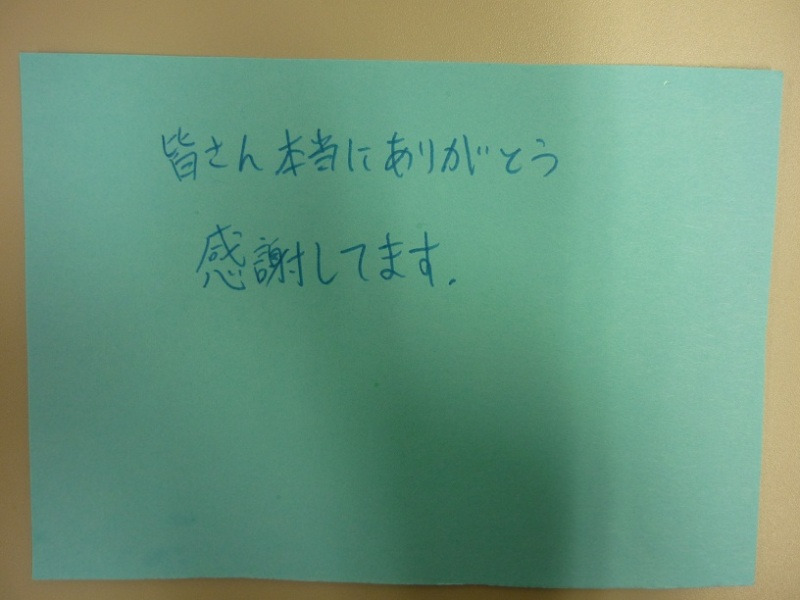 皆さん本当にありがとう
感謝してます.